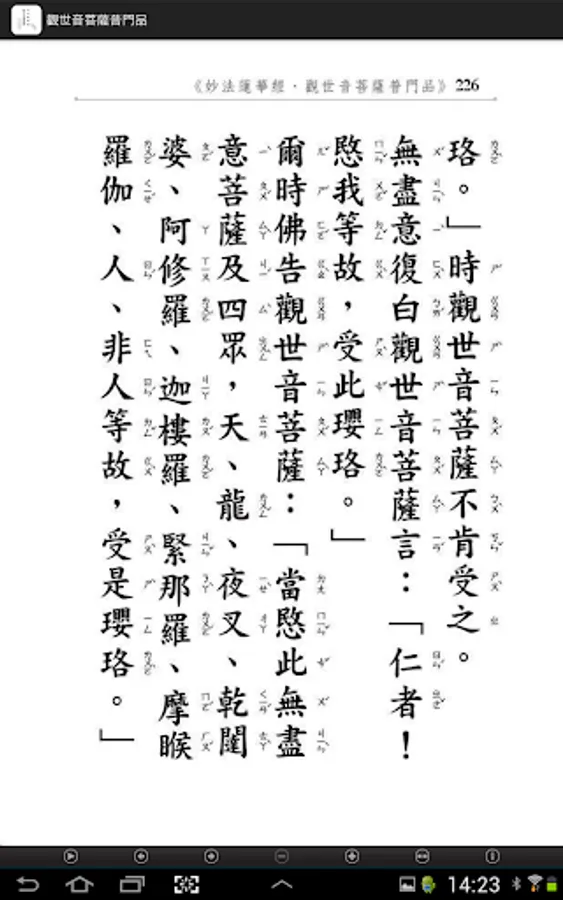 觀世音菩薩普門品
《妙法蓮華經·觀世音菩薩普門品》 226
珞。」時觀世音菩薩不肯受之。
無盡意復白觀世音菩薩言：「仁者！
愍我等故，受此瓔珞。」
爾時佛告觀世音菩薩：「當愍此無盡
意菩薩及四眾，天、龍、夜叉、乾闥
婆、阿修羅、迦樓羅、緊那羅、摩睺
羅伽、人、非人等故，受是瓔珞。」
14:23